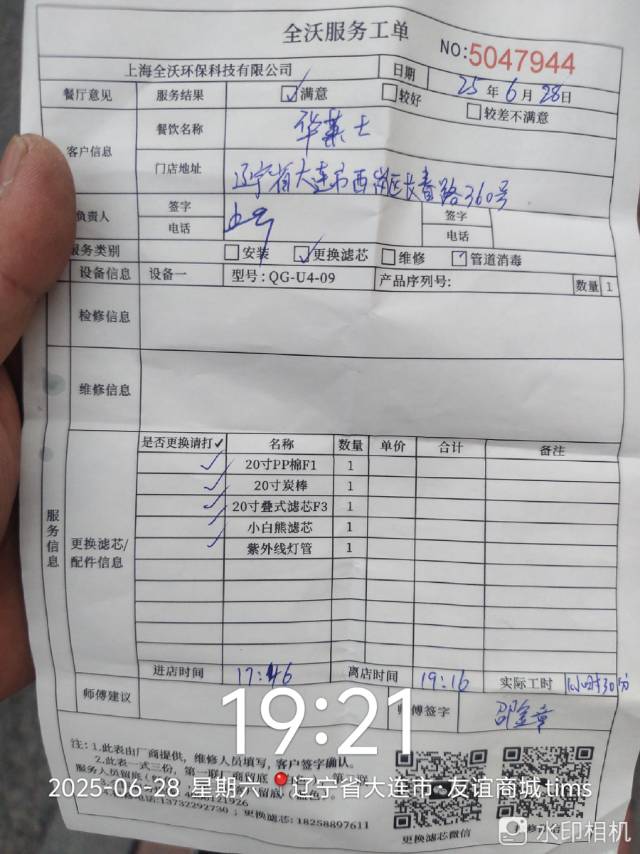 全沃服务工单
NO:5047944
上海全沃环保科技有限公司 日期 25年6月28日
餐厅意见 服务结果 ☑满意 □较好 □较差不满意
客户信息 餐饮名称 华莱士
门店地址 辽宁省大连市西岗区长春路360号
负责人 签字 签字
电话 电话
服务类别 □安装 ☑更换滤芯 □维修 ☑管道消毒
设备信息 设备一 型号:QG-U4-09 产品序列号: 数量 1
检修信息
维修信息
服务信息
更换滤芯/配件信息
是否更换请打✓ 名称 数量 单价 合计 备注
✓ 20寸PP棉F1 1
✓ 20寸炭棒 1
✓ 20寸叠式滤芯F3 1
✓ 小白熊滤芯 1
✓ 紫外线灯管 1
进店时间 17:46 离店时间 19:16 实际工时 1小时30分
师傅建议 师傅签字 邵金章
19:21
注:1.此表由厂商提供，维修人员填写，客户签字确认。
2.此表一式三份，第一联
服务人员留底
2025-06-28 星期六 辽宁省大连市·友谊商城tims
电话:13732292730；更换滤芯:18258897611
更换滤芯微信
水印相机